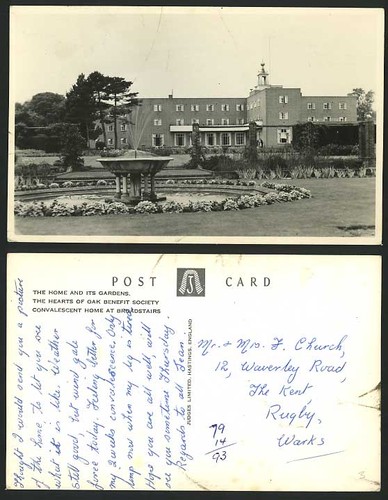 POST CARD
THE HOME AND ITS GARDENS.
THE HEARTS OF OAK BENEFIT SOCIETY
CONVALESCENT HOME AT BROADSTAIRS
JUDGES LIMITED, HASTINGS, ENGLAND
Thought I would send you a picture
of the home to let you see
what it is like. Weather
still good, but wind gale
force today. Feeling better for
my 2 weeks convalescence. Only
limp now when my leg is tired
Hope you are all well, will
see you sometime Thursday.
Regards to all Jean
Mr. & Mrs. F. Church,
12, Waverley Road,
The Kent,
Rugby,
Warks
79
14
93